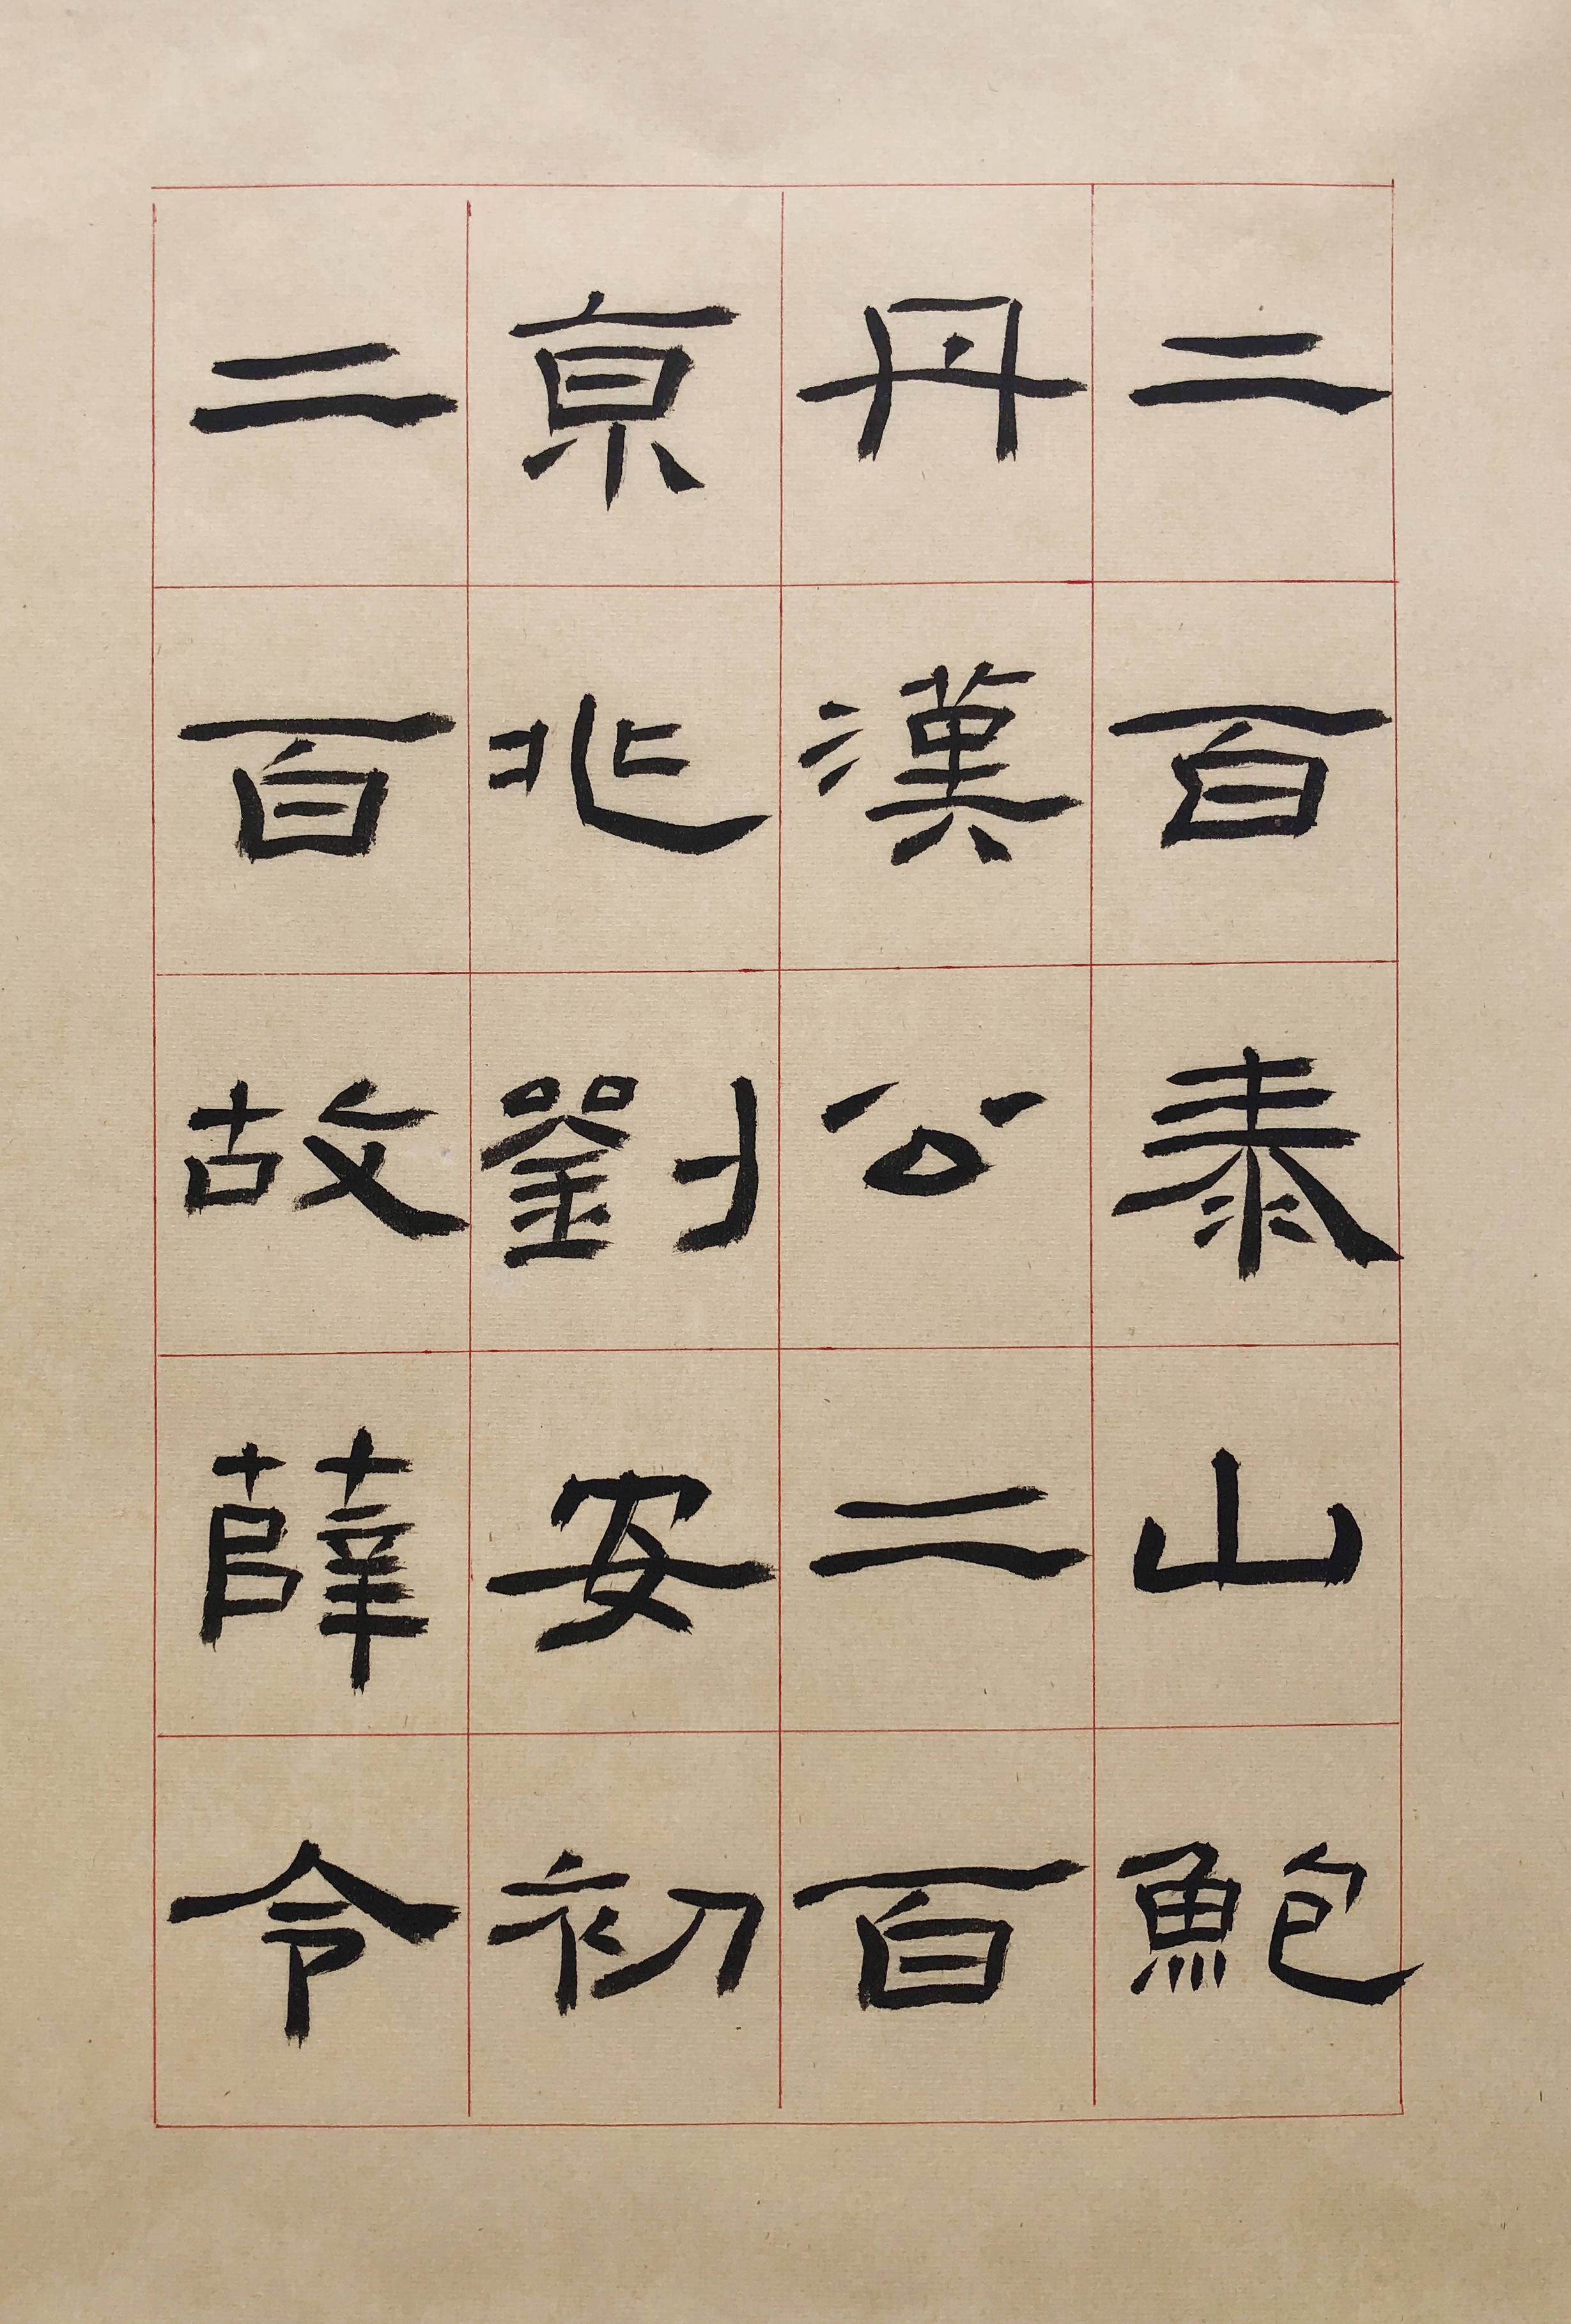 二百泰山鮑
丹漢公二百
京兆劉安初
二百故薛令